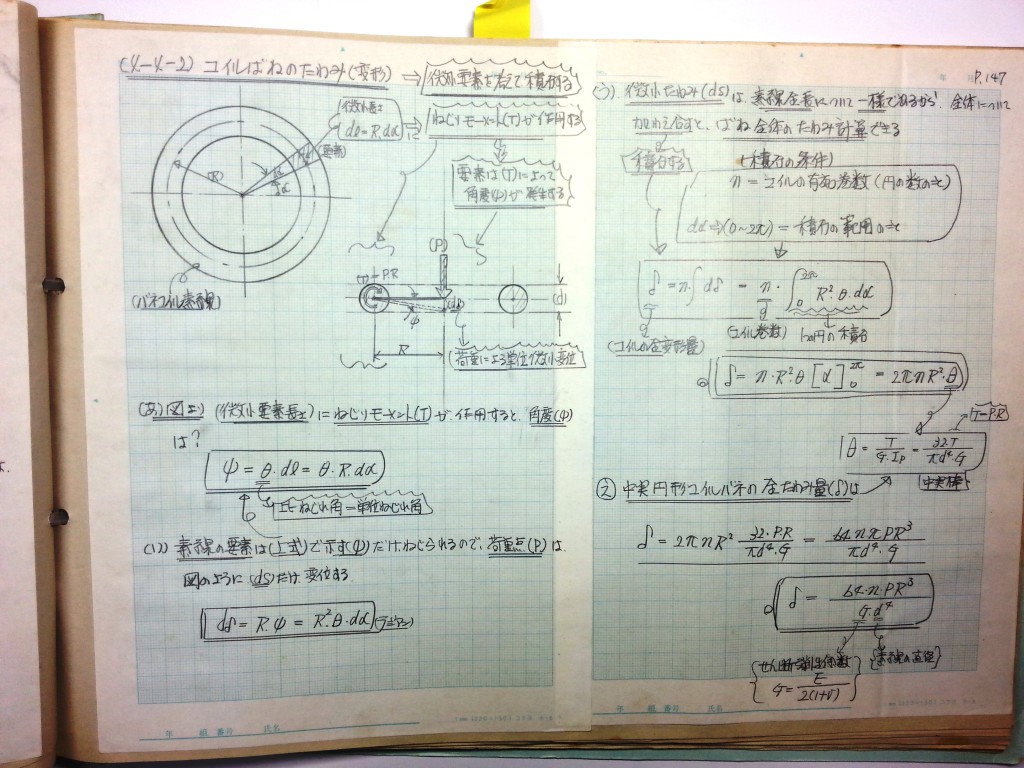 (4-4-2) コイルばねのたわみ(変形) ⇒ 微小要素を応じて積分する
微小長さ
dl=R.dα
に ねじりモーメント(T)が作用する
(要素)
(R)
dα
要素は(T)によって
角度(ψ)が発生する
(バネコイル素線)
(P)
T=P.R
ψ
(dδ)
(d)
R
荷重による単位微小変位
(あ)図より (微小要素長さ)にねじりモーメント(T)が作用すると、角度(ψ)
は?
ψ = θ.dl = θ.R.dα
比ねじれ角=単位ねじれ角
(い) 素線の要素は(上式)で示す(ψ)だけねじられるので、荷重点(P)は
図のように(dδ)だけ変位する
dδ = R.ψ = R².θ.dα (ラジアン)
年 組 番号 氏名
P.147
(う) 微小たわみ(dδ)は、素線全長について一様であるから、全体について
加え合すと、ばね全体のたわみ計算できる
積分する
(積分の条件)
n = コイルの有効巻数(円の数のこと)
dα⇒(0~2π) = 積分の範囲のこと
δ = n.∫dδ = n.∫₀^2π R².θ.dα
(コイルの全変形量)
(コイル巻数) 1コ円の積分
δ = n.R².θ[α]₀^2π = 2πnR².θ
T=P.R
θ = T/G.Ip = 32.T/πd⁴.G
中実棒
(え) 中実円形コイルバネの全たわみ量(δ)は
δ = 2πnR² 32.PR/πd⁴.G = 64.nπPR³/πd⁴.G
δ = 64.n.PR³/G.d⁴
せん断弾性係数
G = E/2(1+ν)
素線の直径
年 組 番号 氏名